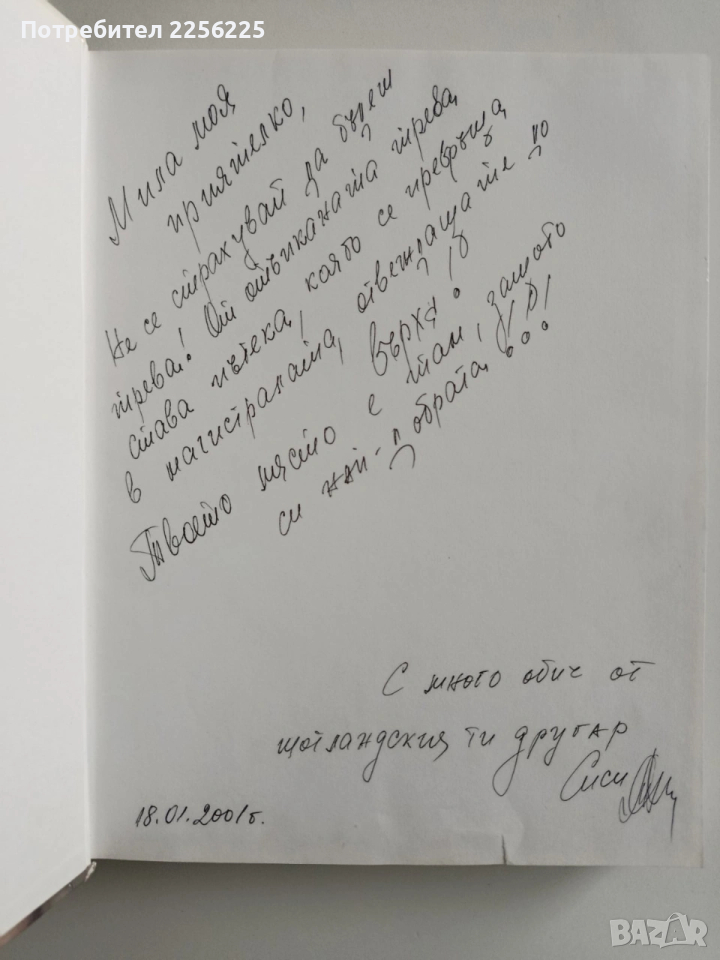 Потребител 2256225
Мила моя
приятелко,
Не се страхувай да бъдеш
трева! От отъпканата трева
става пътека, която се превръща
в магистрала, отвеждаща те по
върха!
Твоето място е там, защото
си най-добрата!!!
С много обич от
шотландския ти другар
Сиси
18.01.2001г.
BAZAR